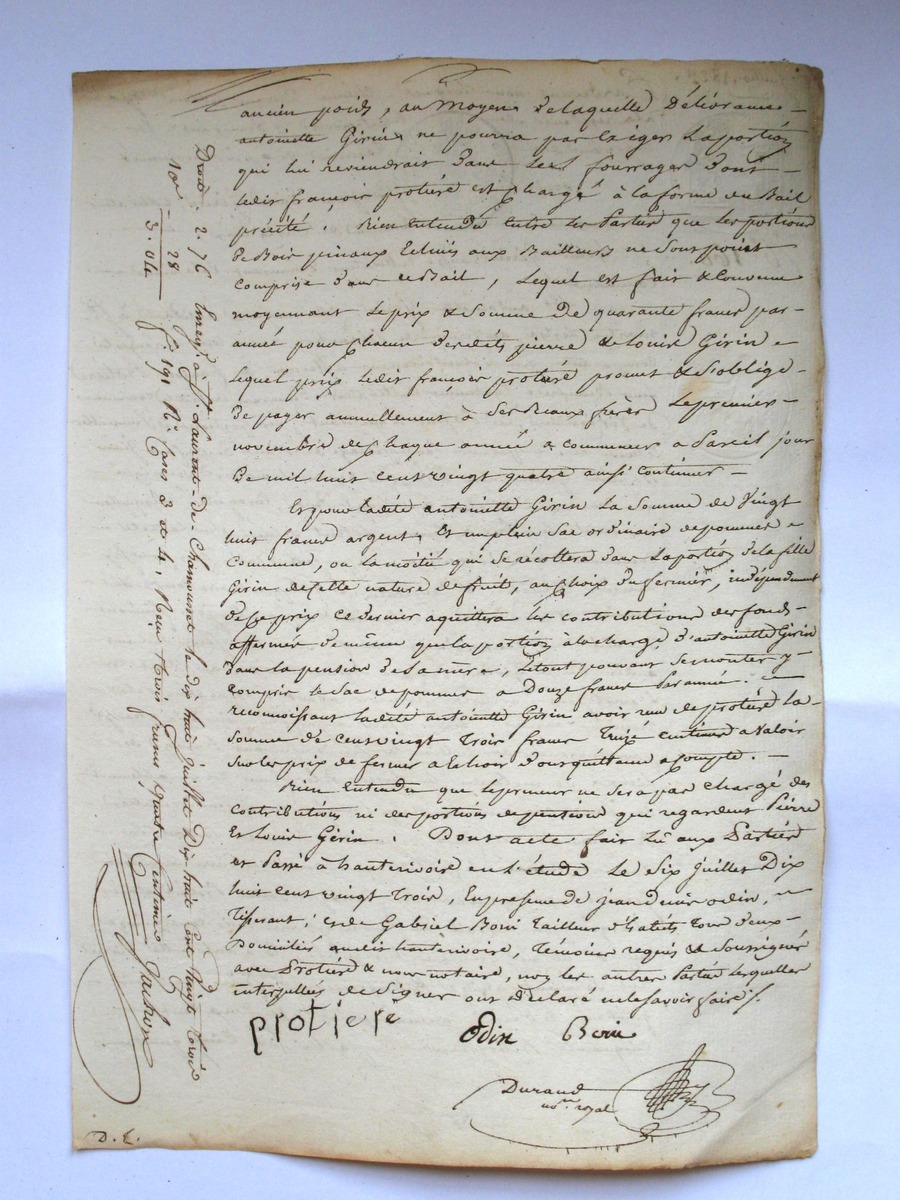 ancien poids, au moyen de laquelle délivrance
antoinette Girin ne pourra pas exiger la portion
qui lui reviendrait dans les fourrages dont
ledit françois protière est chargé à la forme du Bail
précité. Bien Entendu entre les Parties que les portions
de Bois pinaux aux Bailleurs ne sont point
comprise dans ce Bail, Lequel est fait & Convenu
moyennant Le prix & Somme de quarante francs par
année pour Chacun desdits pierre & Louis Girin
Lequel prix ledit françois protière promet & S'oblige
de payer annuellement à Ses Beaux frères Le premier
novembre de Chaque année a commencer a Pareil jour
de mil huit cent vingt quatre ainsi continuer
Et pour ladite antoinette Girin La Somme de Vingt
huit francs argent, Et un plein Sac ordinaire de pommes
Commune, ou la moitié qui Se récoltera dans La portion de la fille
Girin de cette nature de fruits, au Choix du fermier, indépendament
de Ce prix ce dernier aquittera les contributions des fonds
affermés de même que la portion à la charge d'antoinette Girin
dans la pension de Sa mère, Le tout pouvant Se monter y
compris Le Sac de pommes a Douze francs Par année.
reconnoissant ladite antoinette Girin avoir reçu de protière La
Somme de Cent vingt Trois francs centimes a Valoir
Sur les prix de fermes a Echoir dont quittance a Compte.
Bien Entendu que le preneur ne Sera pas chargé des
contributions ni des portions de pension qui regardent Pierre
Et Louis Gérin. Dont acte fait Lû aux Parties
et Passé à hauterivoire en L'étude Le Six Juillet Dix
huit cent vingt Trois, En presence de jean Denis odin,
Tisserant, et de Gabriel Boni Tailleur d'habits Tous deux
Domiciliés audit hauterivoire, Témoins requis & Soussignés
avec Protière & nous notaire, non les autres Parties Lesquelles
interpellées de Signer ont déclaré ne le Savoir faire /.
protiere
Odin Boni
Durand
not. royal
D. E.
Droits. 2. 76 Enreg. à St. Laurent-de-Chamousset le dix huit juillet Dix huit Cent Vingt trois
10e 28 f° 191 R° Cases 3 et 4, Reçu trois francs quatre Centimes
3. 04